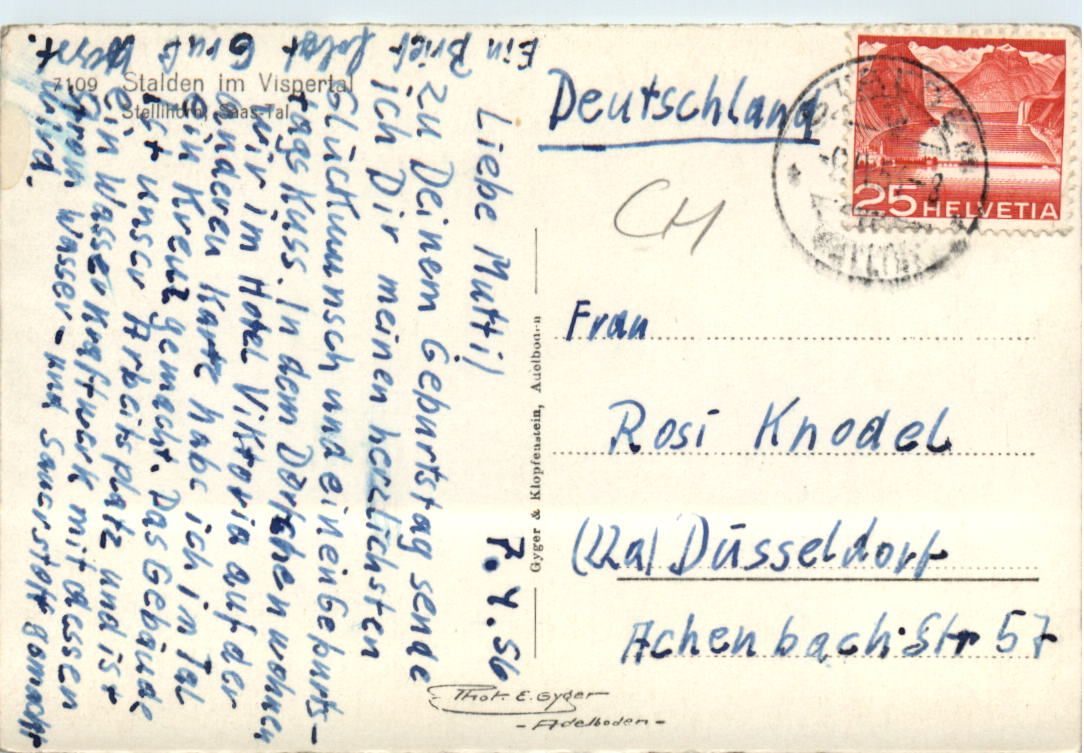 7109 Stalden im Vispertal
Stellihorn, Saas-Tal
7.4.56
Liebe Mutti!
Zu Deinem Geburtstag sende
ich Dir meinen herzlichsten
Glückwunsch und einen Geburts-
tagskuss. In dem Dörfchen wohnen
wir im Hotel Viktoria auf der
anderen Karte habe ich im Tal
ein Kreuz gemacht. Das Gebäude
ist unser Arbeitsplatz und ist
ein Wasserkraftwerk mit dessen
Strom Wasser- und Sauerstoff gemacht
wird.
Ein Brief folgt Gruß
Gyger & Klopfenstein, Adelboden
Phot. E. Gyger
- Adelboden -
Deutschland
CH
25 HELVETIA
Frau
Rosi Knodel
(22a) Düsseldorf
Achenbach-Str 57